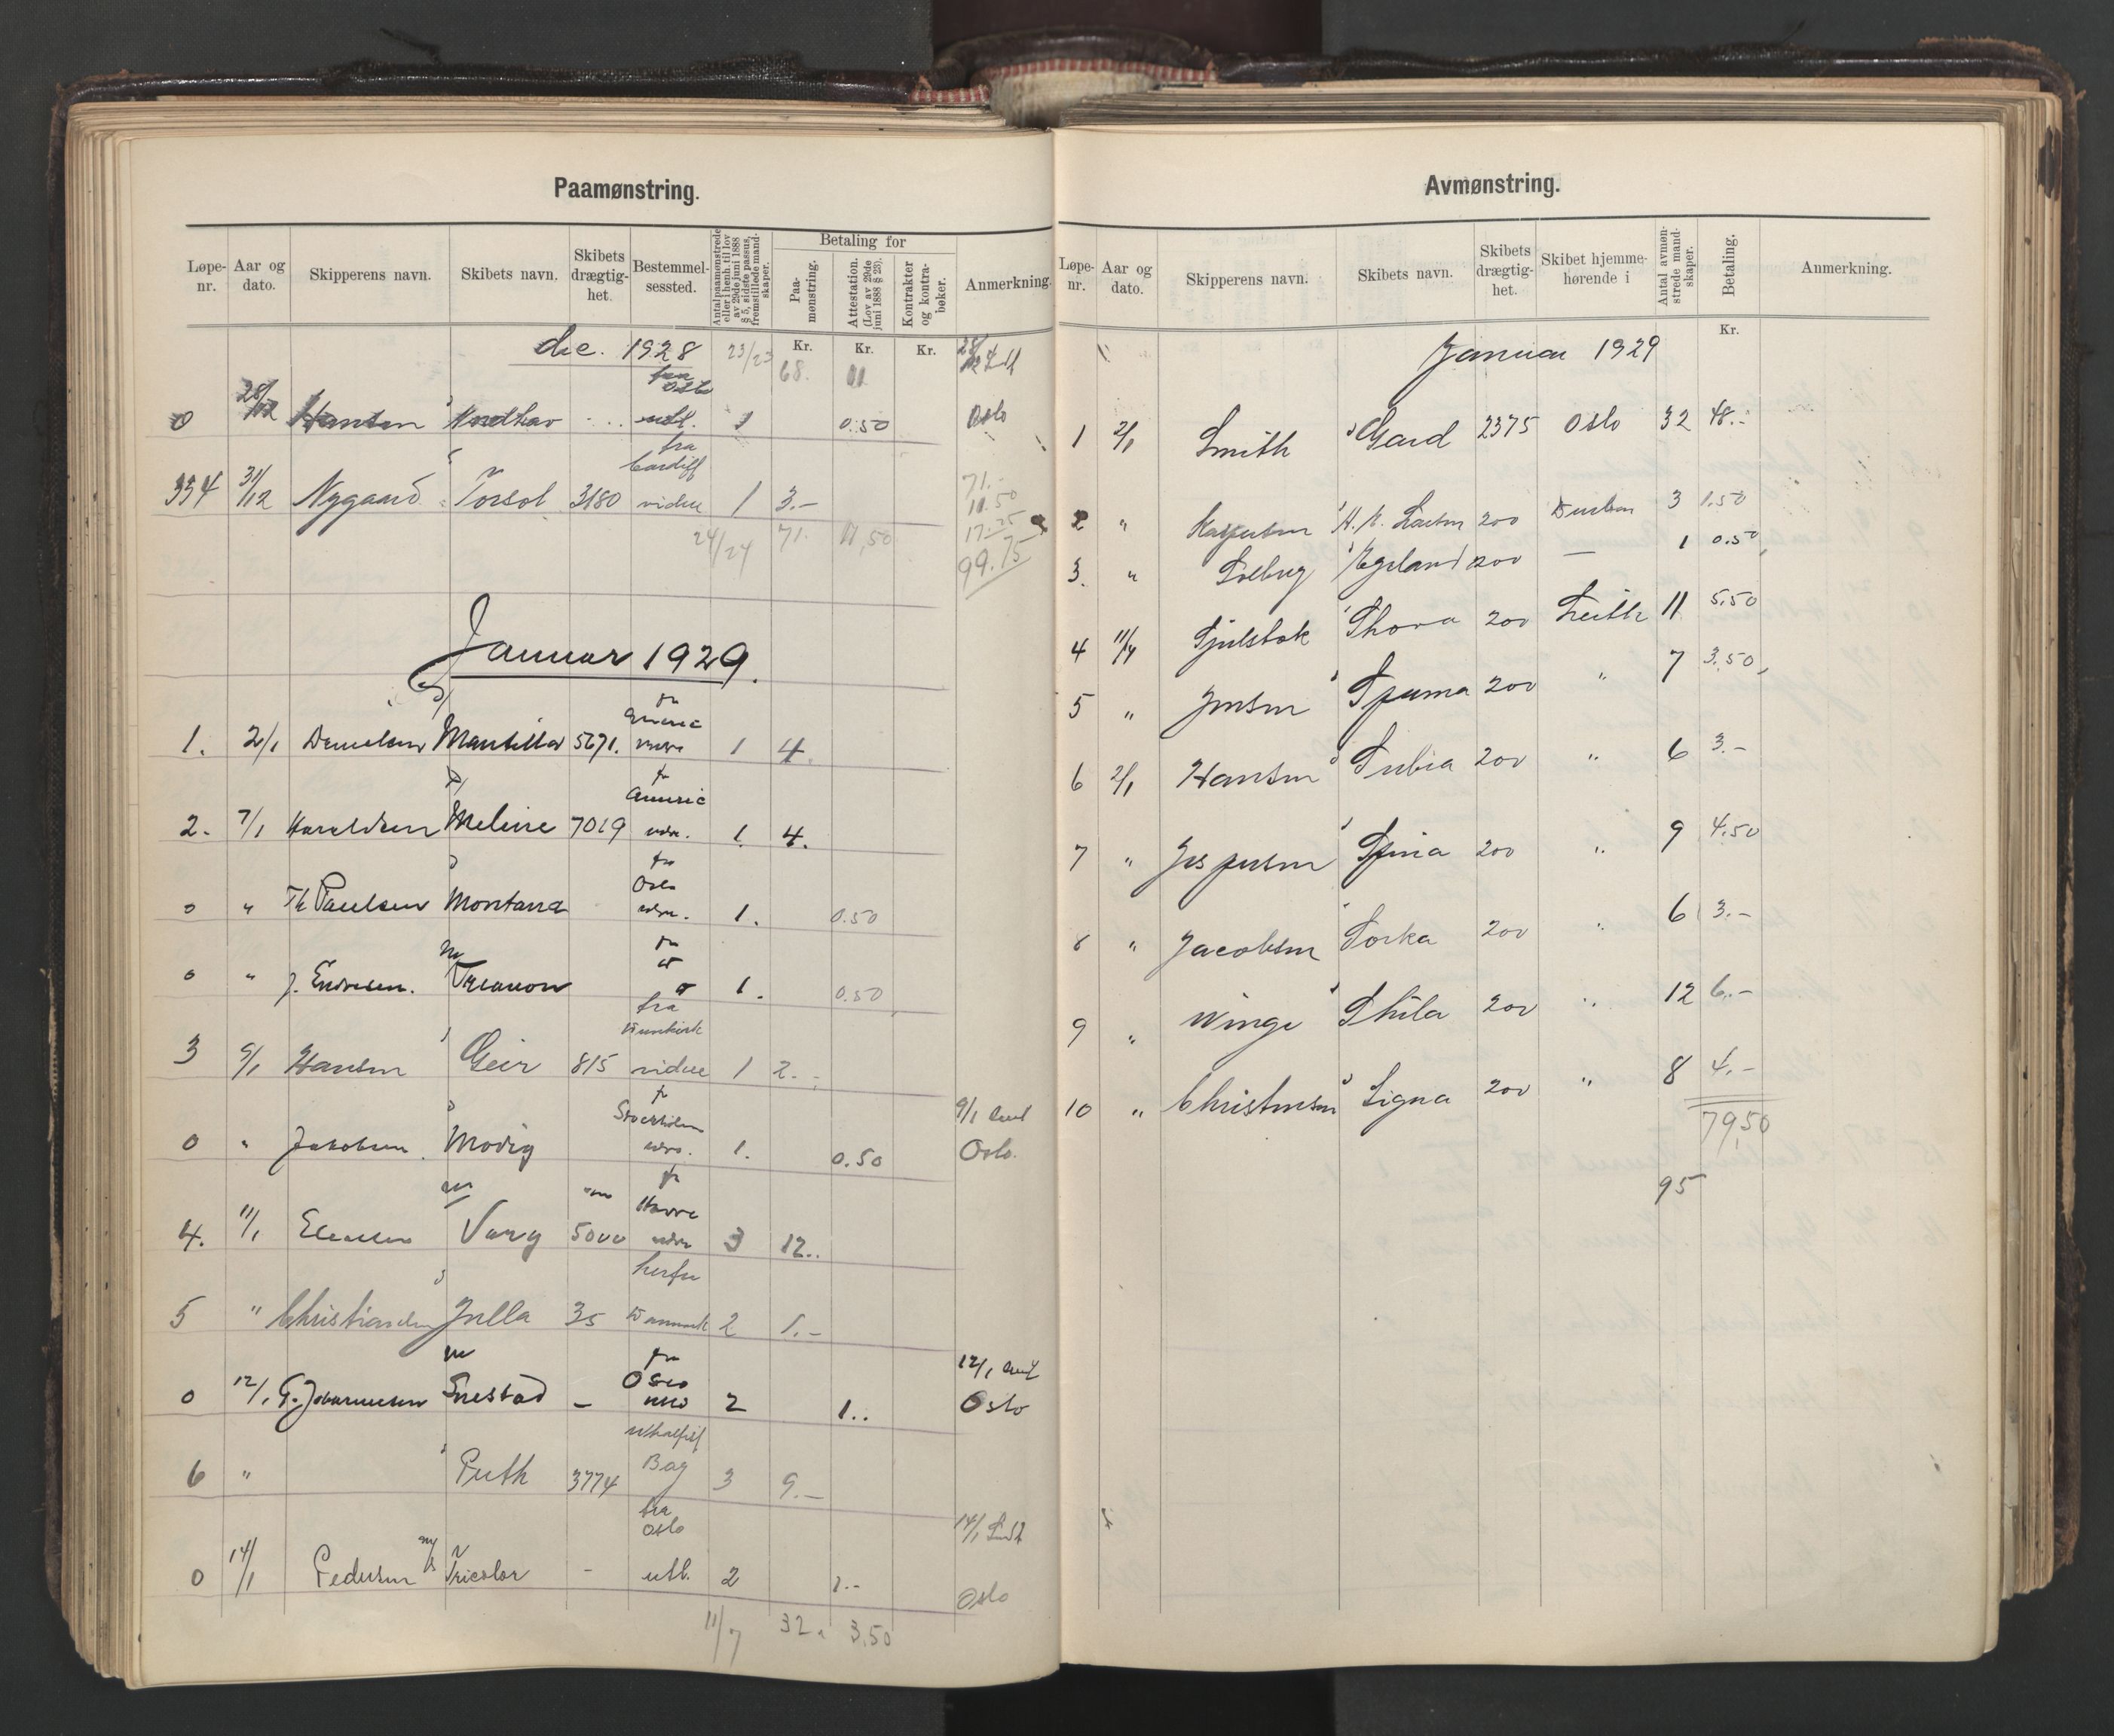 Paamønstring.
Løpe-nr. Aar og dato. Skipperens navn. Skibets navn. Skibets drægtig-het. Bestemmel-sessted. Antal paamønstrede eller i henh. til lov av 29de juni 1888 § 5, sidste passus, fremstillede mand-skaper. Betaling for Paa-mønstring. Attestation. (Lov av 29de juni 1888 § 23). Kontrakter og kontra-bøker. Anmerkning.
Kr. Kr. Kr.
dec. 1928 23/23 68. 11
fra Oslo
0 28/12 Hansen Nordhav - utl. 1 0.50 Oslo
fra Cardiff
334 31/12 Nygaard Torsol 3180 videre 1 3.-
71.-
11.50
17.25
24/24 71. 11,50
99.75
Januar 1929.
1. 2/1 Danielsen Mantilla 5671. 1 4.
2. 7/1 Haraldsen Meline 7019 1. 4.
fra Oslo
0 " Th Paulsen Montana 1. 0.50
0 " J. Endresen. Trianon 1. 0.50
fra
3 9/1 Hansen Geir 815 videre 1 2.-
Stockholm
0 " Jakobsen Modig 1. 0.50 9/1 Oslo.
Havre
4. 11/1 Varg 5000 3 12..
herfra
5 " Christiansen Julla 35 Danmark 2 1.-
Oslo
0 12/1 G. Johannesen Snestad - 2 1.. 12/1 Oslo
6 " Ruth 3774 Bag 3 9.-
fra Oslo
0 14/1 Pedersen m/s Tricolor - utl. 2 1.- 14/1 Oslo
11/7 32. 3.50
Avmønstring.
Løpe-nr. Aar og dato. Skipperens navn. Skibets navn. Skibets drægtig-het. Skibet hjemme-hørende i Antal avmøn-strede mand-skaper. Betaling. Anmerkning.
Kr.
Januar 1929
1 2/1 Smith Gard 2375 Oslo 32 48.-
2 " Kaspersen 200 3 1.50
3. " Solberg Egeland 200 — 1 0.50
4 Thora 200 Leith 11 5.50
5 " Jensen Spuma 200 " 7 3.50
6 2/1 Hansen 200 " 6 3.-
7 " Jespersen Spina 200 " 9 4.50
8 " Jacobsen Sorka 200 " 6 3.-
9 " Winge Thila 200 " 12 6.-
10 " Christensen Signa 200 " 8 4.-
79,50
95